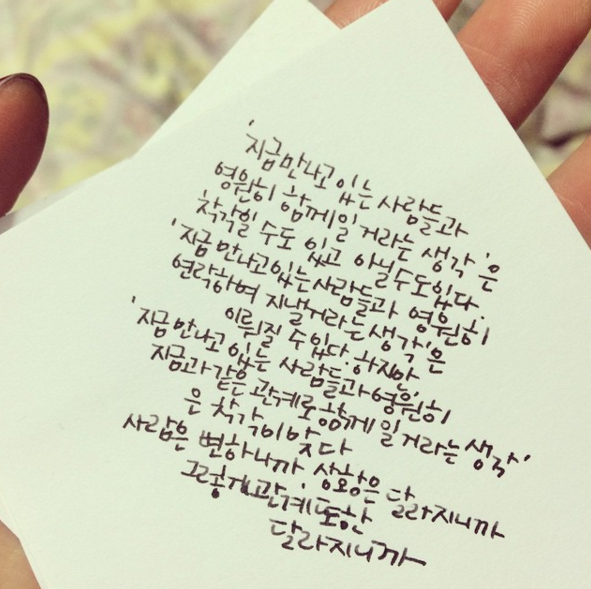 '지금 만나고 있는 사람들과
영원히 함께일 거라는 생각'은
착각일 수도 있고 아닐 수도 있다.
'지금 만나고 있는 사람들과 영원히
연락하며 지낼거라는 생각'은
이뤄질 수 있다. 하지만,
'지금 만나고 있는 사람들과 영원히
지금과 같은 관계로 함께 일 거라는 생각'
은 착각이 맞다
사람은 변하니까 상황은 달라지니까
그렇게 관계 또한
달라지니까